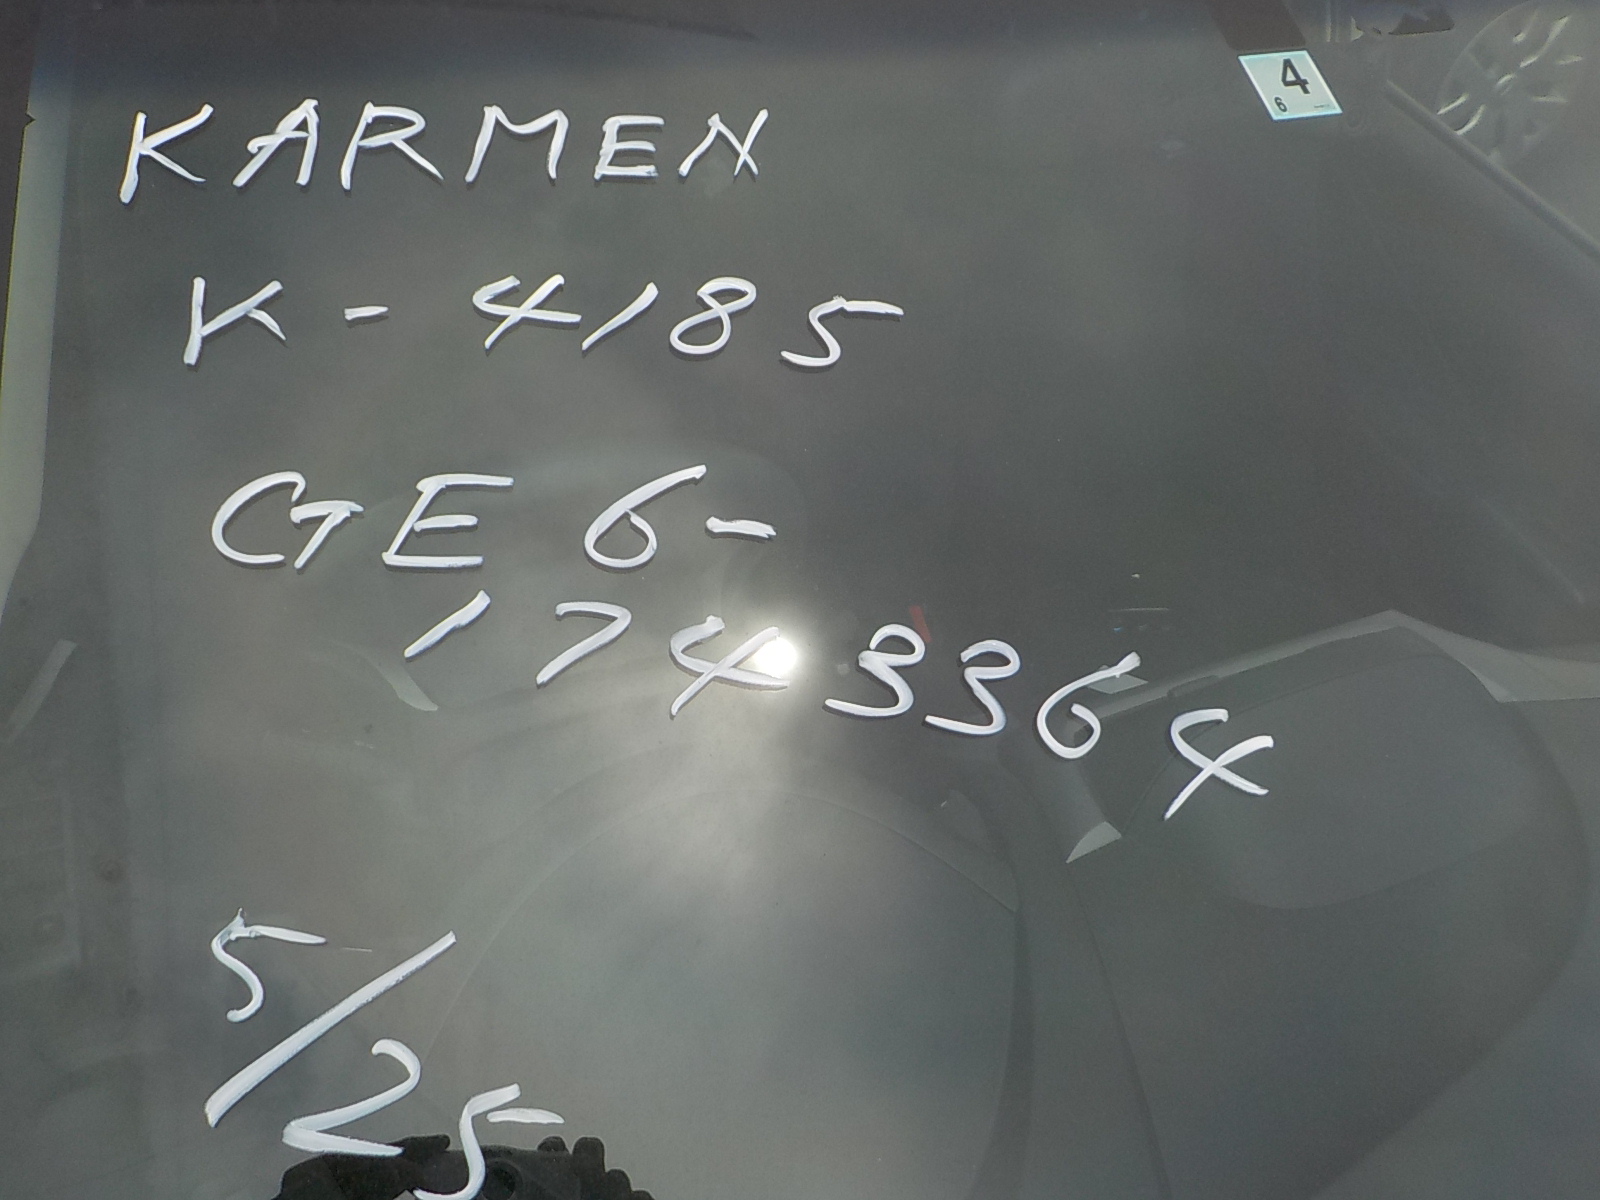 KARMEN
K-4185
GE6-
1743364
5/25
4
6